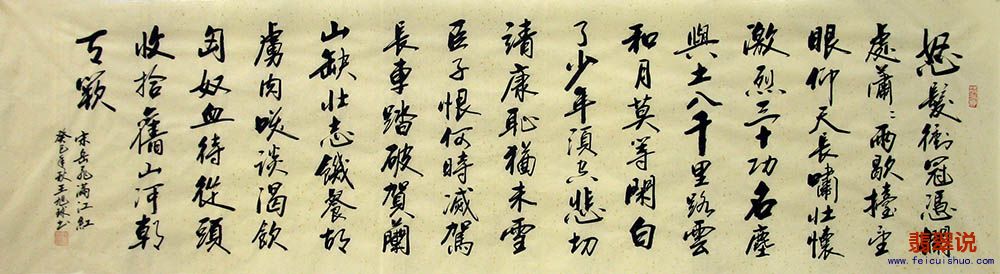 怒髮衝冠憑欄
處瀟〻雨歇擡望
眼仰天長嘯壯懷
激烈三十功名塵
與土八千里路雲
和月莫等閑白
了少年頭空悲切
靖康恥猶未雪
臣子恨何時滅駕
長車踏破賀蘭
山缺壯志饑餐胡
虜肉笑談渴飲
匈奴血待從頭
收拾舊山河朝
天闕
宋岳飛滿江紅
癸巳年秋王
翡翠说
www.feicuishuo.com